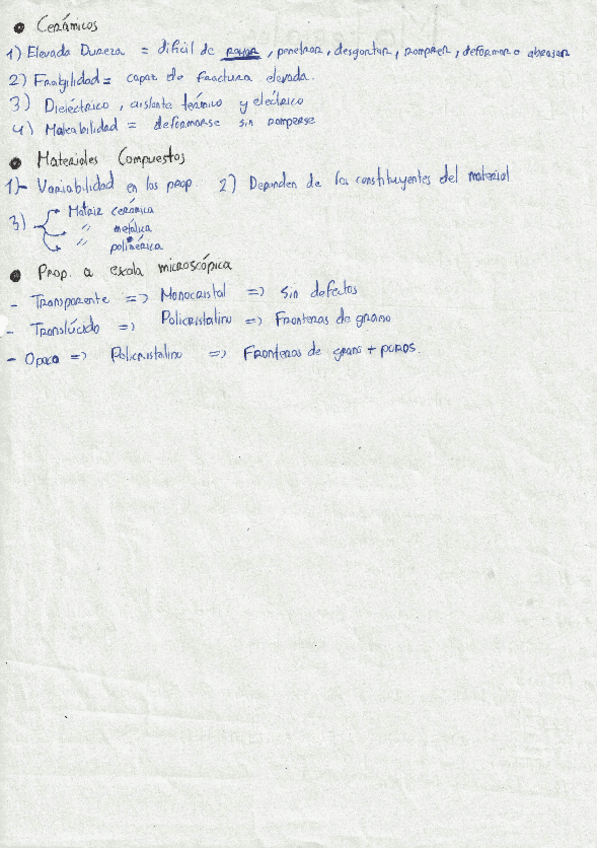 ● Cerámicos
1) Elevada Dureza = difícil de rayar, penetrar, desgastar, romper, deformar o abrasar
2) Fragilidad = capaz de fractura elevada.
3) Dieléctrico, aislante térmico y eléctrico
4) Maleabilidad = deformarse sin romperse
● Materiales Compuestos
1)- Variabilidad en las prop. 2) Dependen de los constituyentes del material
3) → Matriz cerámica
→ " metálica
→ " polimérica
● Prop. a escala microscópica
- Transparente => Monocristal => Sin defectos
- Translúcido => Policristalino => Fronteras de grano
- Opaco => Policristalino => Fronteras de grano + poros.